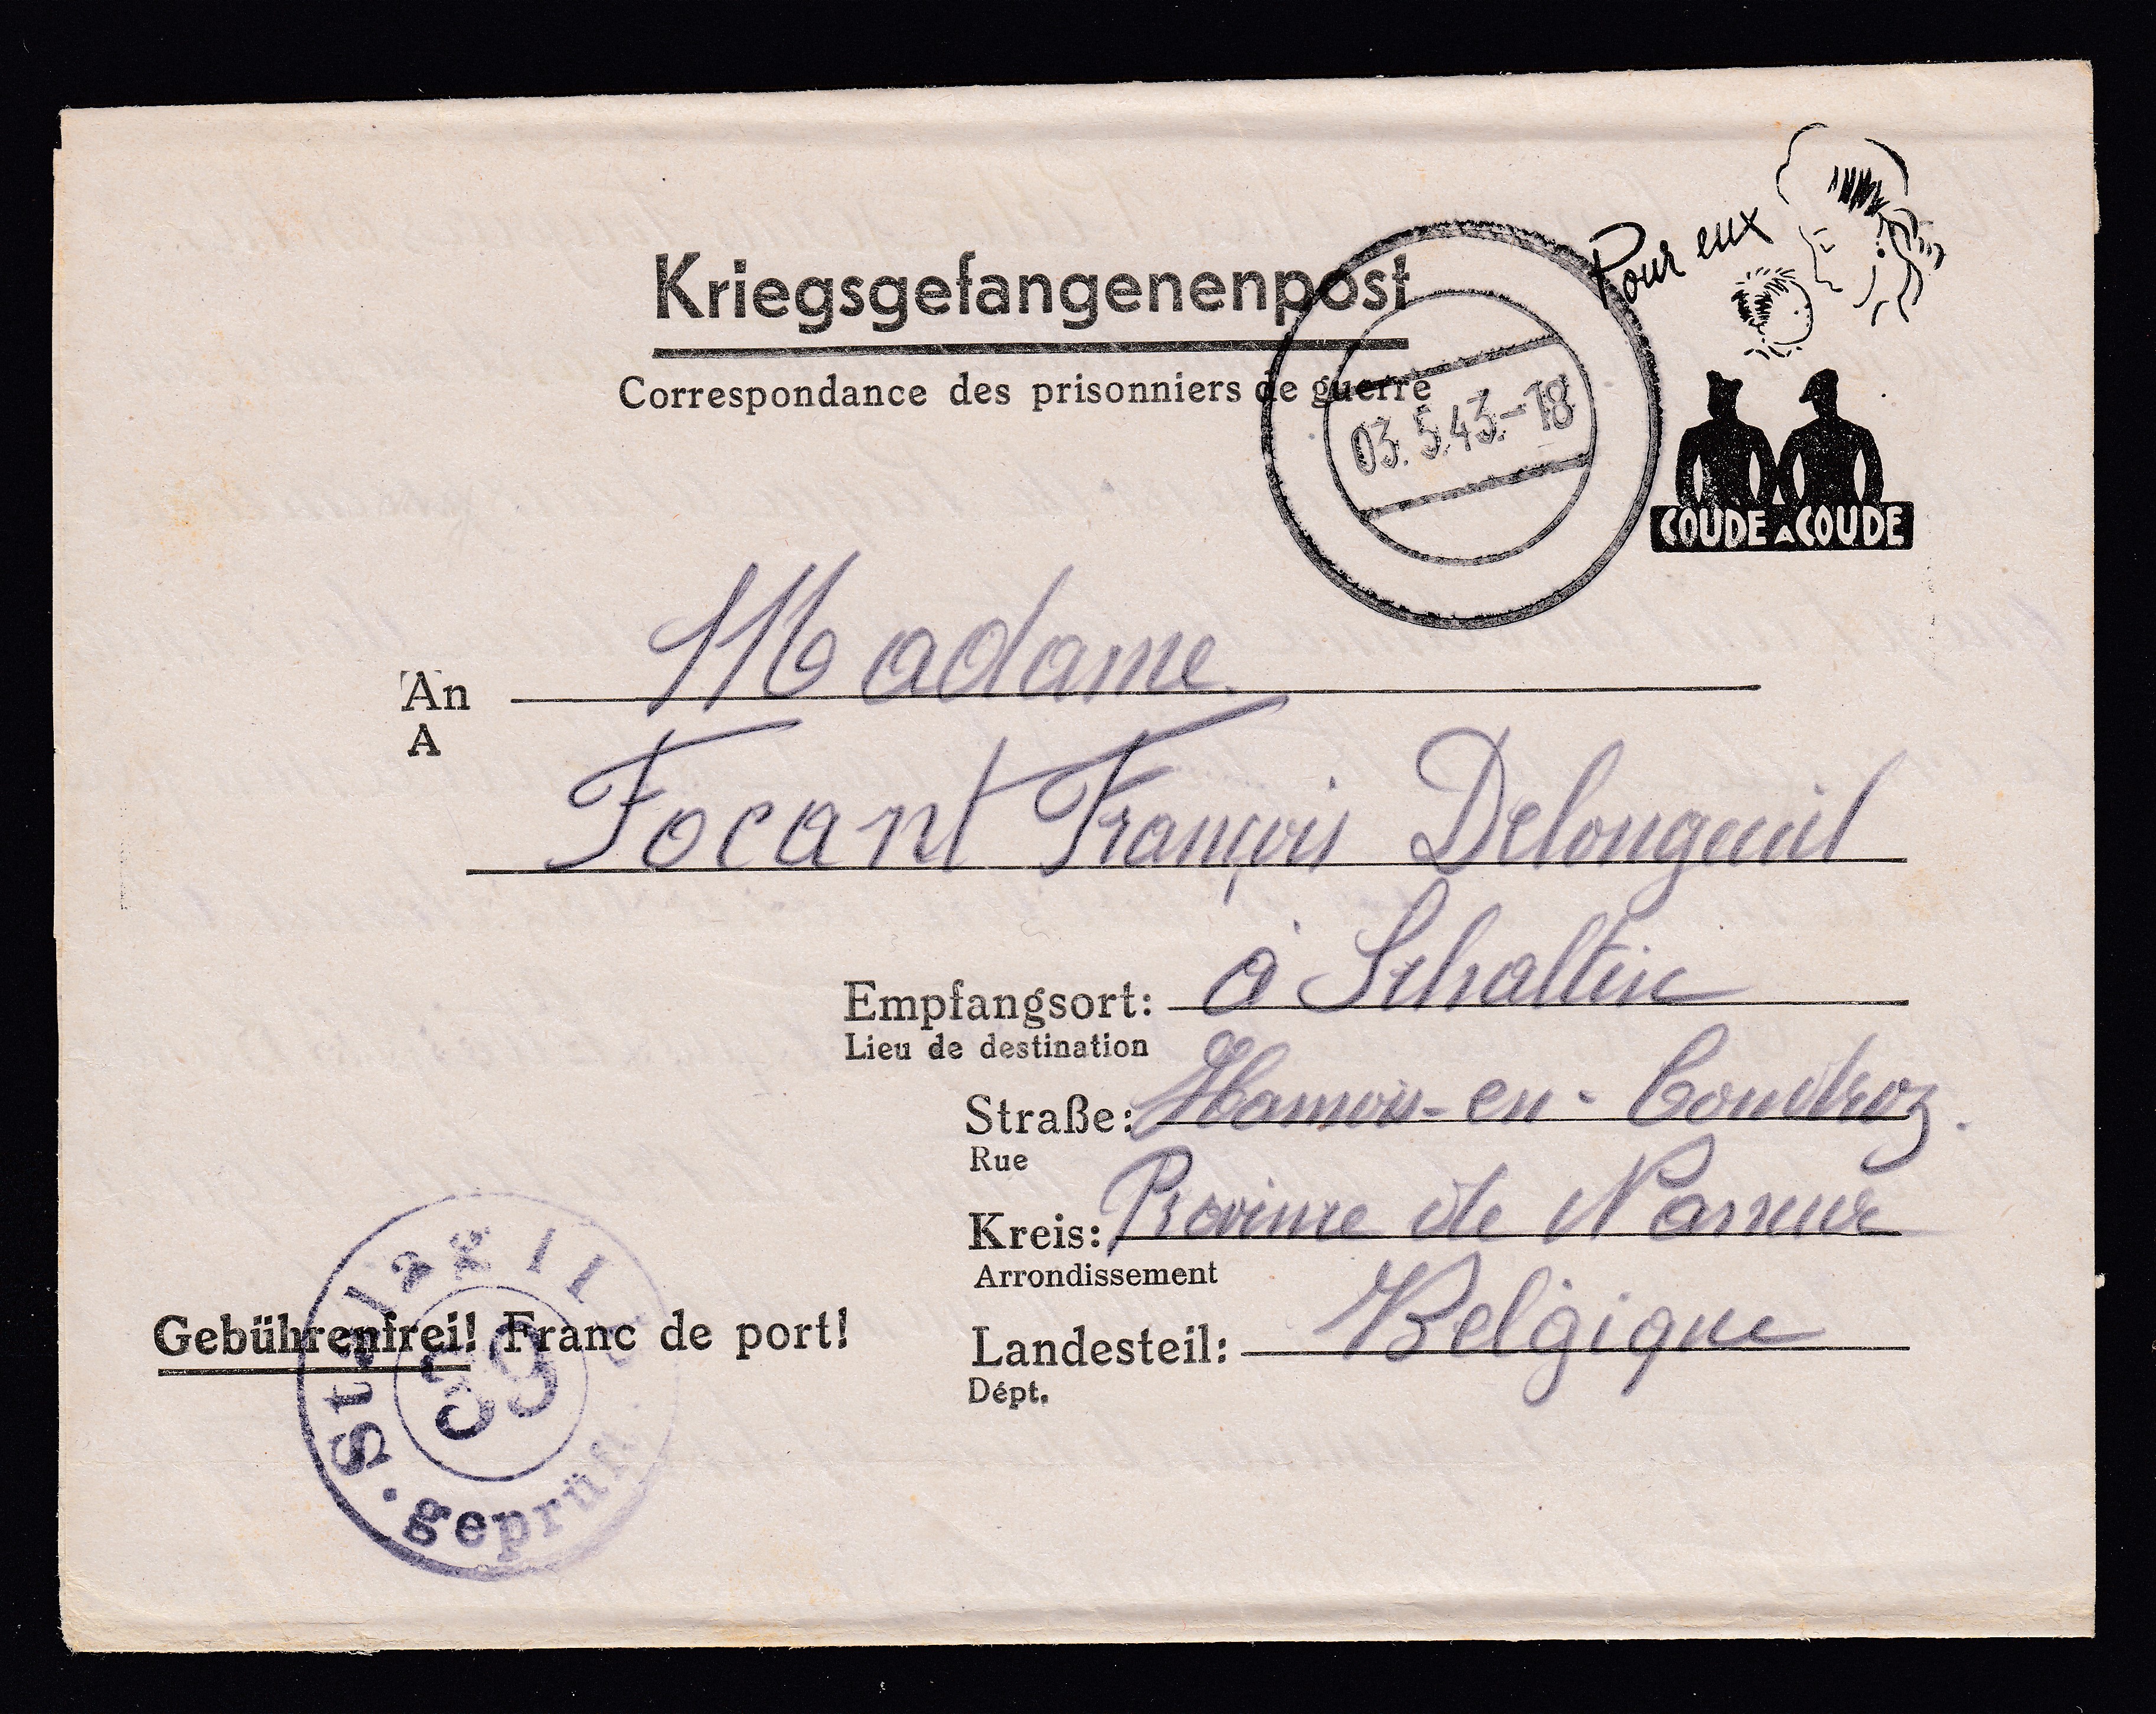 Pour eux
Kriegsgefangenenpost
Correspondance des prisonniers de guerre
03.5.43.-18
COUDE A COUDE
An Madame
A
Focant François Delongueil
Empfangsort: à Schaltin
Lieu de destination
Straße: Hamois-en-Condroz.
Rue
Kreis: Province de Namur
Arrondissement
Landesteil: Belgique
Dépt.
Gebührenfrei! Franc de port!
Stalag II
39
geprüft